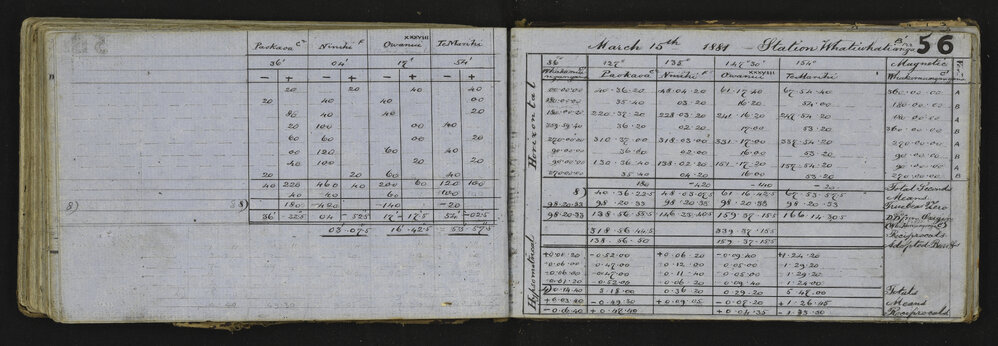 Paokava C Ninihi F Owanui XXXVIII TeMarihi
36' 04' 17' 54'
− + − + − + − +
20 20 40 40
20 40 40 00
80 40 20
20 100 00 40
60 60 00 20
00 120 60 40
40 100 20 20
20 20 60 40
40 220 460 40 200 60 120 100
40 40 60 100
8) 180 8) 420 −140 −20
36' 22.5 04 −52.5 17' −17.5 54' −02.5
03.07.5 16.42.5 53.57.5
March 15th 1881 Station Whatiwhatiungu 56
36° 127° 135° 147°30' 154° Magnetic
Paokava C Ninihi F Owanui XXXVIII TeMarihi
Horizontal
00.00.00 40.36.20 48.04.20 61.17.40 67.54.40 360.00.00 A
35.40 03.20 16.20 54.00 180.00.00 B
180.00.20 220.37.20 228.03.20 241.16.20 247.54.20 180.00.00 A
359.59.40 36.20 02.20 17.00 53.20 360.00.00 B
270.00.00 310.37.00 318.03.00 331.17.00 337.54.20 270.00.00 A
90.00.00 36.00 02.00 16.00 53.20 90.00.00 B
90.00.00 130.36.40 138.02.20 151.17.20 157.54.20 90.00.00 A
270.00.00 35.40 04.20 16.00 53.20 270.00.00 B
180 −420 −140 −20 Total Seconds
8) 40.36.22.5 48.03.07.5 61.16.42.5 67.53.57.5 Means
98.20.33 98.20.33 98.20.33 98.20.33 98.20.33 True bea Zero
98.20.33 138.56.55.5 146.23.40.5 159.37.15.5 166.14.30.5
318.56.44.5 339.37.15.5 Reciprocals
138.56.50 159.37.15.5 Adopted Bearg
Hypsometrical
+0.01.20 −0.52.00 +0.06.20 −0.09.40 +1.24.20
−0.06.00 −0.47.00 −0.12.00 −0.05.00 −1.29.20
−0.06.00 −0.47.00 −0.11.40 −0.05.00 −1.29.20
−0.01.20 −0.52.00 −0.06.20 −0.09.40 1.24.00
0.14.40 3.18.00 0.36.20 0.29.20 5.47.00 Totals
+0.03.40 −0.49.30 +0.09.05 −0.07.20 +1.26.45 Means
−0.06.40 +0.48.40 +0.04.35 −1.33.50 Reciprocals